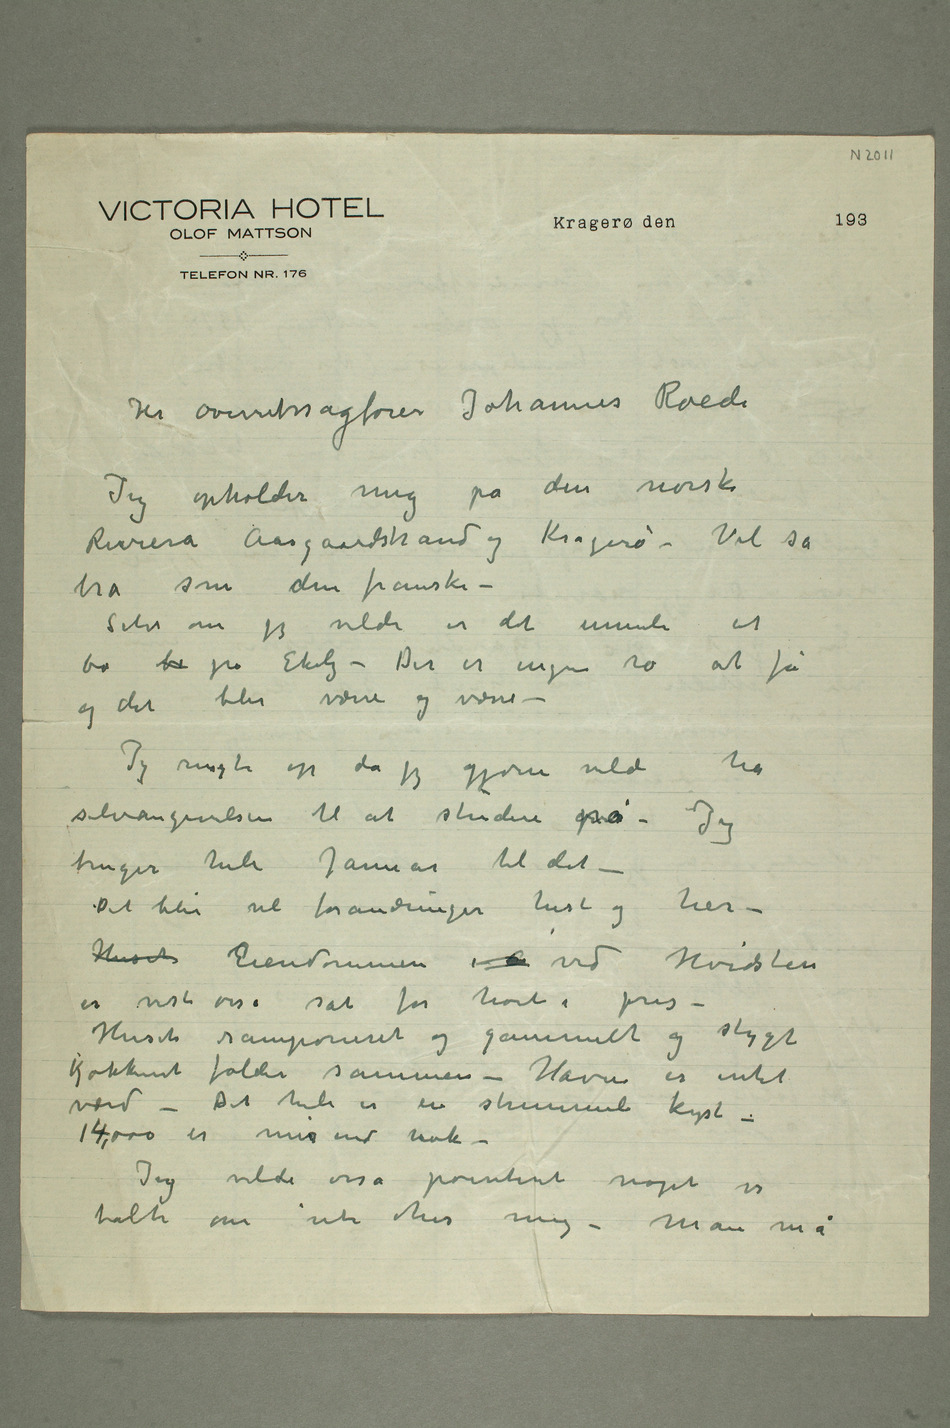 N 2011
VICTORIA HOTEL
OLOF MATTSON
TELEFON NR. 176
Kragerø den 193
Hr overretssagfører Johannes Roede
Jeg opholder mig på den norske
Riviera Aasgaardstrand og Kragerø – Vel så
bra som den franske –
Selv om jeg vilde er det umuli at
bo på Ekely – Der er ingen ro at få
og det blir værre og værre –
Jeg ringte op da jeg gjerne vilde ha
selvangivelsen til at studere på – Jeg
trenger hele Januar til det –
Det blir vel forandringer hist og her –
Huset Eiendommen ved Hvidsten
er vist også sat for høit i pris –
Huset ramponeret og gammelt og stygt
Kjøkkenet falder sammen – Haven er intet
værd – Det hele er en strimmel kyst –
14,000 er mer end nok –
Jeg vilde også pointeret noget vi
talte om ute hos mig – Man må